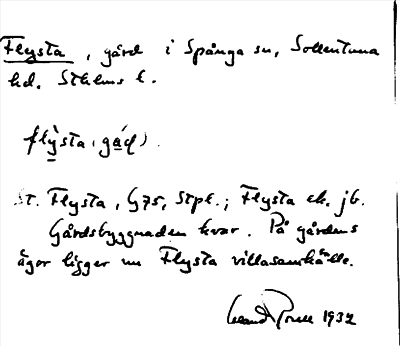 Flysta, gård i Spånga sn, Sollentuna
hd. Sthlms l.
flỳsta, gá̱d)
St. Flysta, G75, Stpl.; Flysta ek. jb.
Gårdsbyggnaden kvar. På gårdens
ägor ligger nu Flysta villasamhälle.
1932